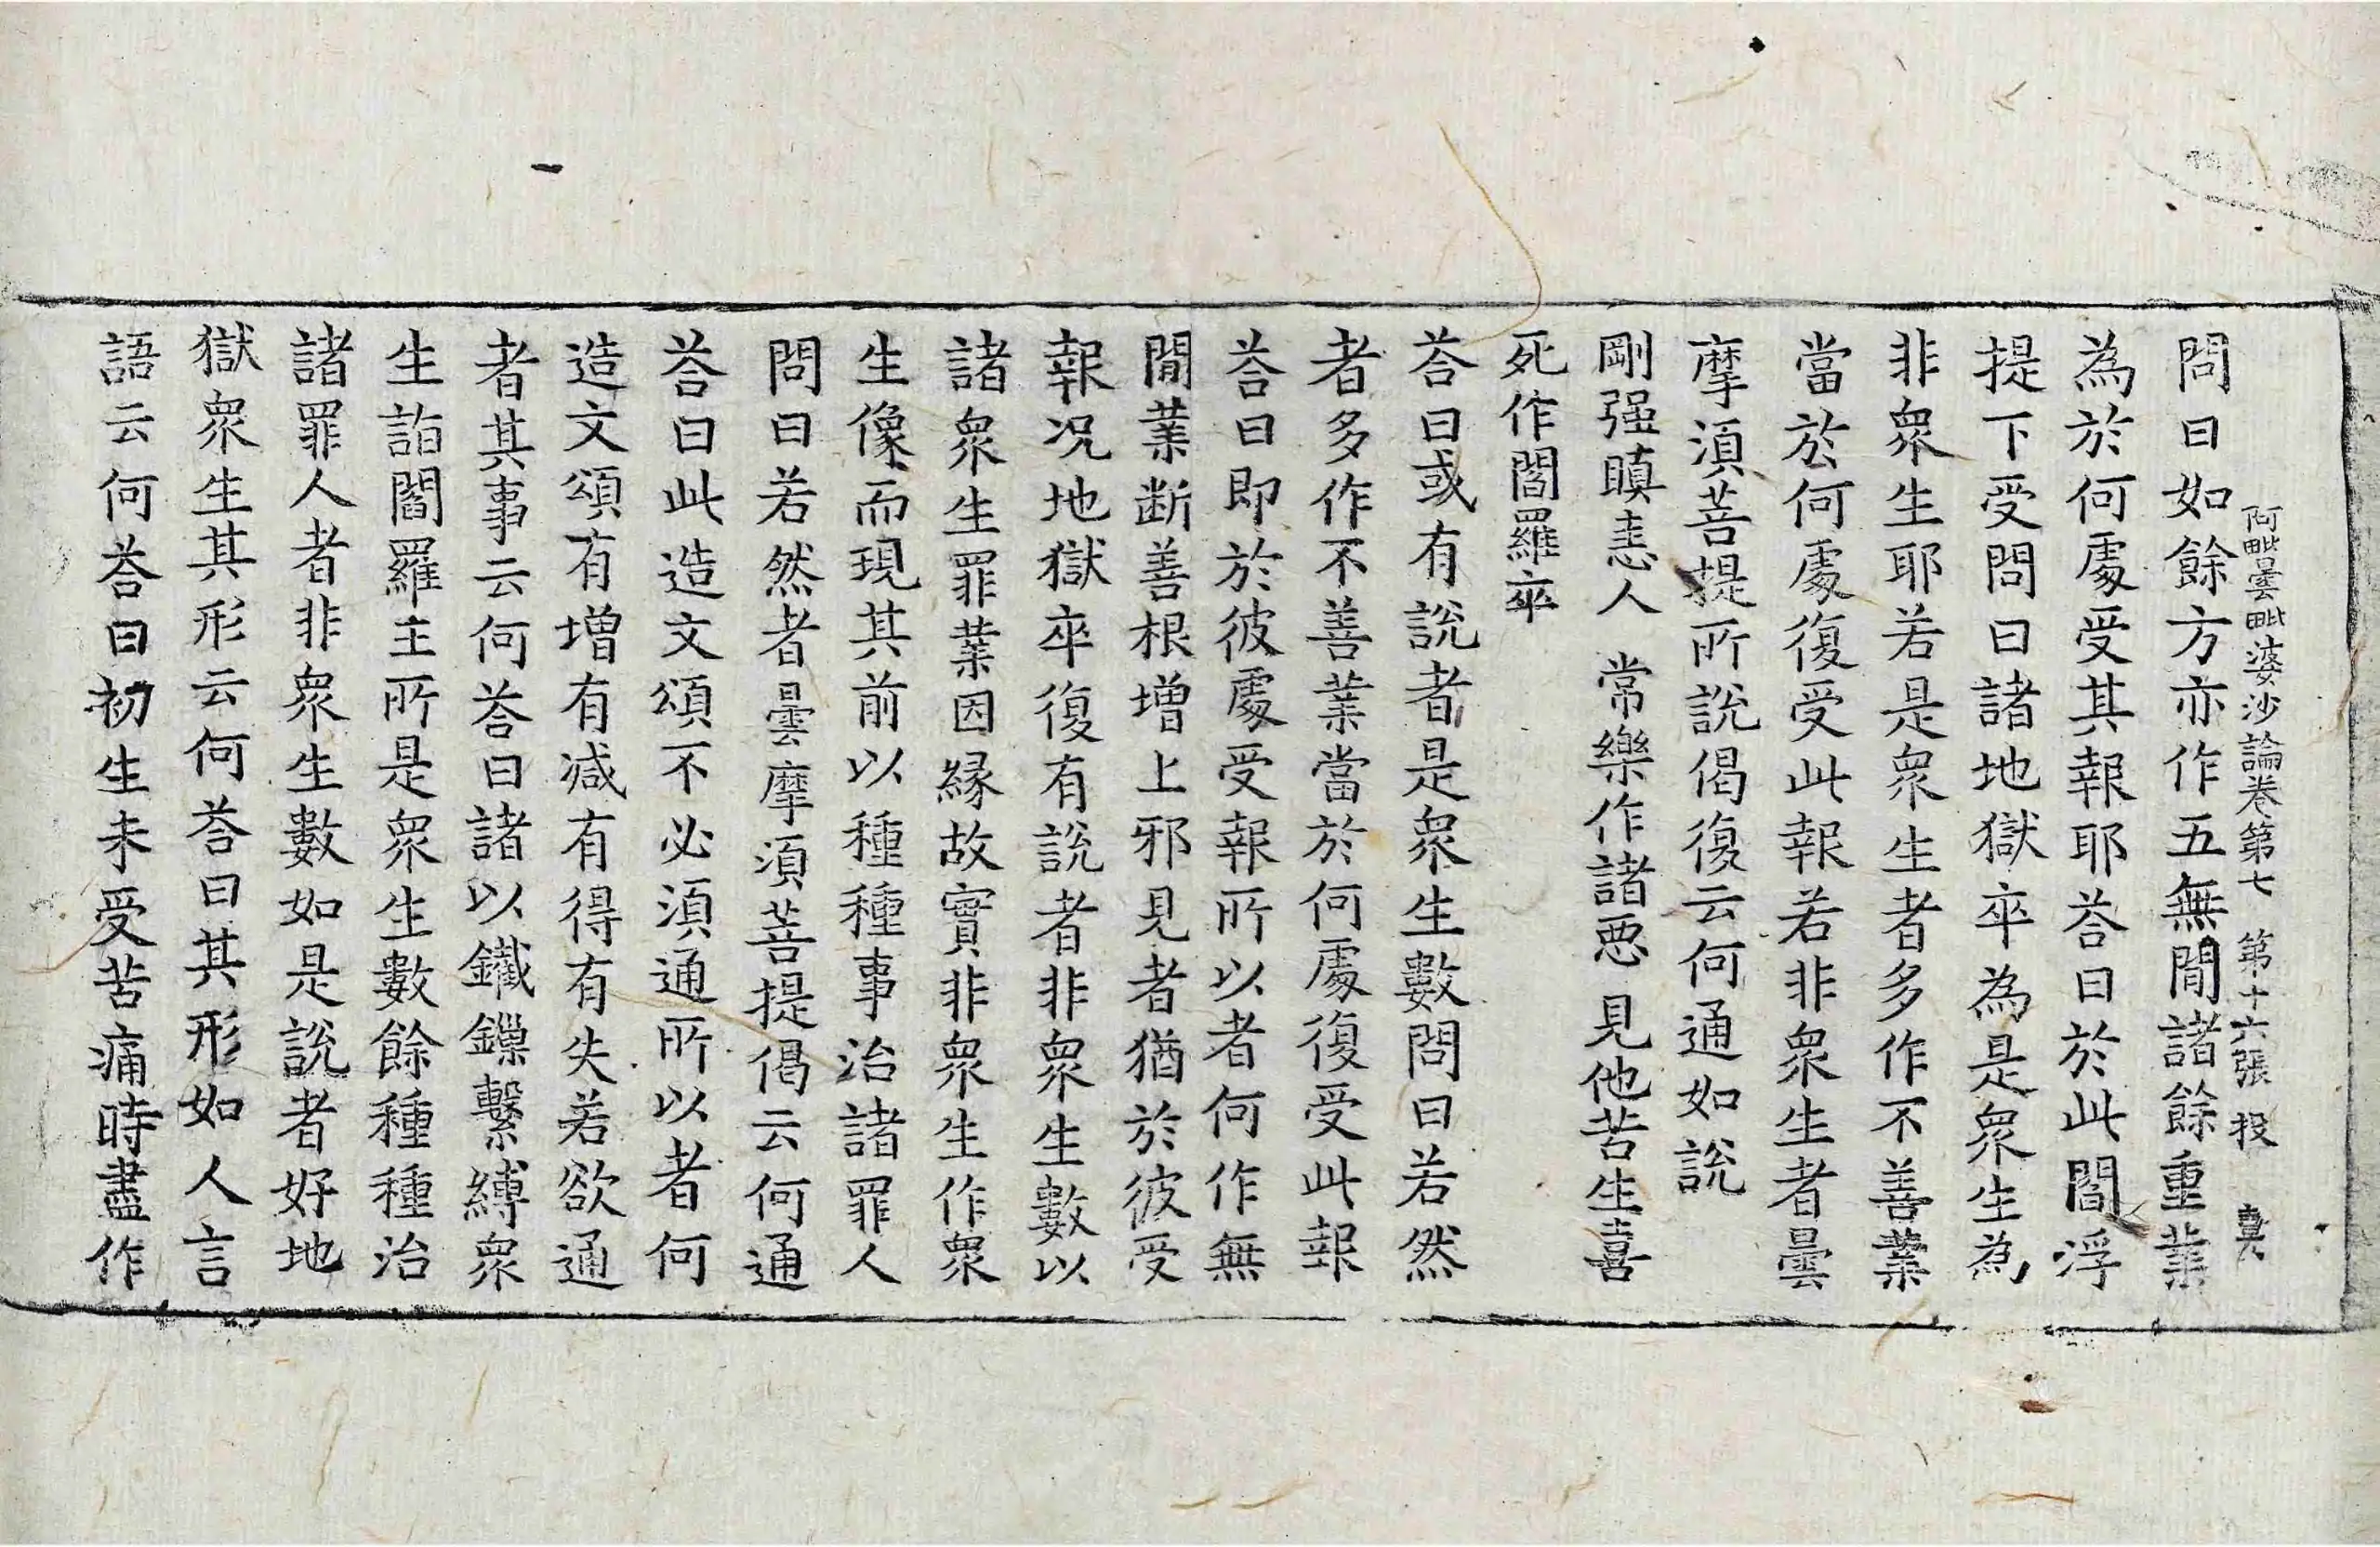 阿毗曇毗婆沙論卷第七 第十六張 投
問曰如餘方亦作五無閒諸餘重業
為於何處受其報耶荅曰於此閻浮
提下受問曰諸地獄卒為是衆生為
非衆生耶若是衆生者多作不善業
當於何處復受此報若非衆生者曇
摩湏菩提所說偈復云何通如說
剛强瞋恚人 常樂作諸惡 見他苦生喜
死作閻羅卒
荅曰或有說者是衆生數問曰若然
者多作不善業當於何處復受此報
荅曰即於彼處受報所以者何作無
閒業断善根增上邪見者猶於彼受
報况地獄卒復有說者非衆生數以
諸衆生罪業因緣故實非衆生作衆
生像而現其前以種種事治諸罪人
問曰若然者曇摩湏菩提偈云何通
荅曰此造文頌不必湏通所以者何
造文頌有增有减有得有失若欲通
者其事云何荅曰諸以鐵鏁繫縛衆
生詣閻羅王所是衆生數餘種種治
諸罪人者非衆生數如是說者好地
獄衆生其形云何荅曰其形如人言
語云何荅曰初生未受苦痛時盡作